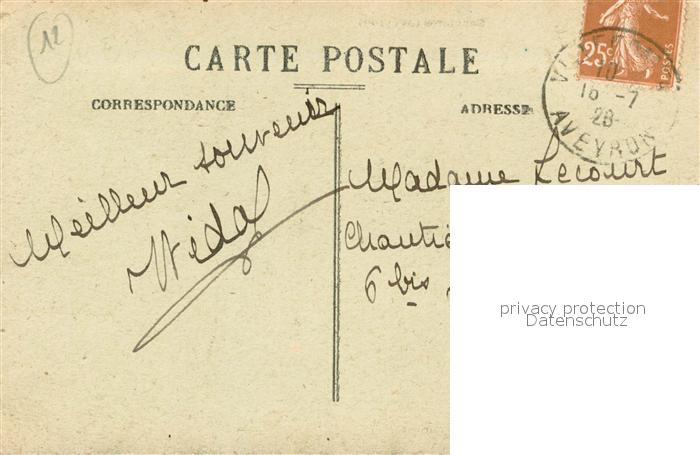 12
CARTE POSTALE
CORRESPONDANCE
ADRESSE
25c
POSTES
16 -7
28
AVEYRON
Meilleur souvenir
Madame Lecourt
6 bis
privacy protection
Datenschutz